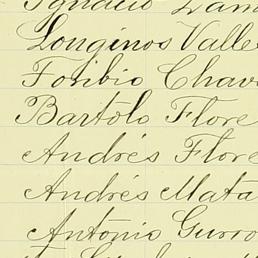 Ignacio
Longinos Valle
Toribio Chav
Bartolo Flore
Andrés Flore
Andrés Mata
Antonio Gurro